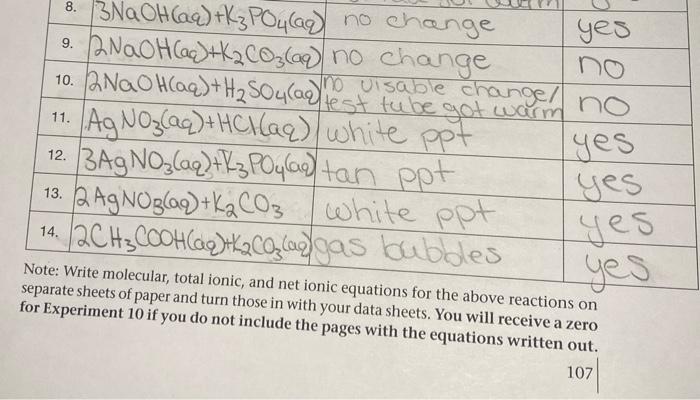 8. 3NaOH(aq)+K₃PO₄(aq) no change yes
9. 2NaOH(aq)+K₂CO₃(aq) no change no
10. 2NaOH(aq)+H₂SO₄(aq) no visable change/
test tube got warm no
11. AgNO₃(aq)+HCl(aq) white ppt yes
12. 3AgNO₃(aq)+K₃PO₄(aq) tan ppt yes
13. 2AgNO₃(aq)+K₂CO₃ white ppt yes
14. 2CH₃COOH(aq)+K₂CO₃(aq) gas bubbles yes
Note: Write molecular, total ionic, and net ionic equations for the above reactions on
separate sheets of paper and turn those in with your data sheets. You will receive a zero
for Experiment 10 if you do not include the pages with the equations written out.
107